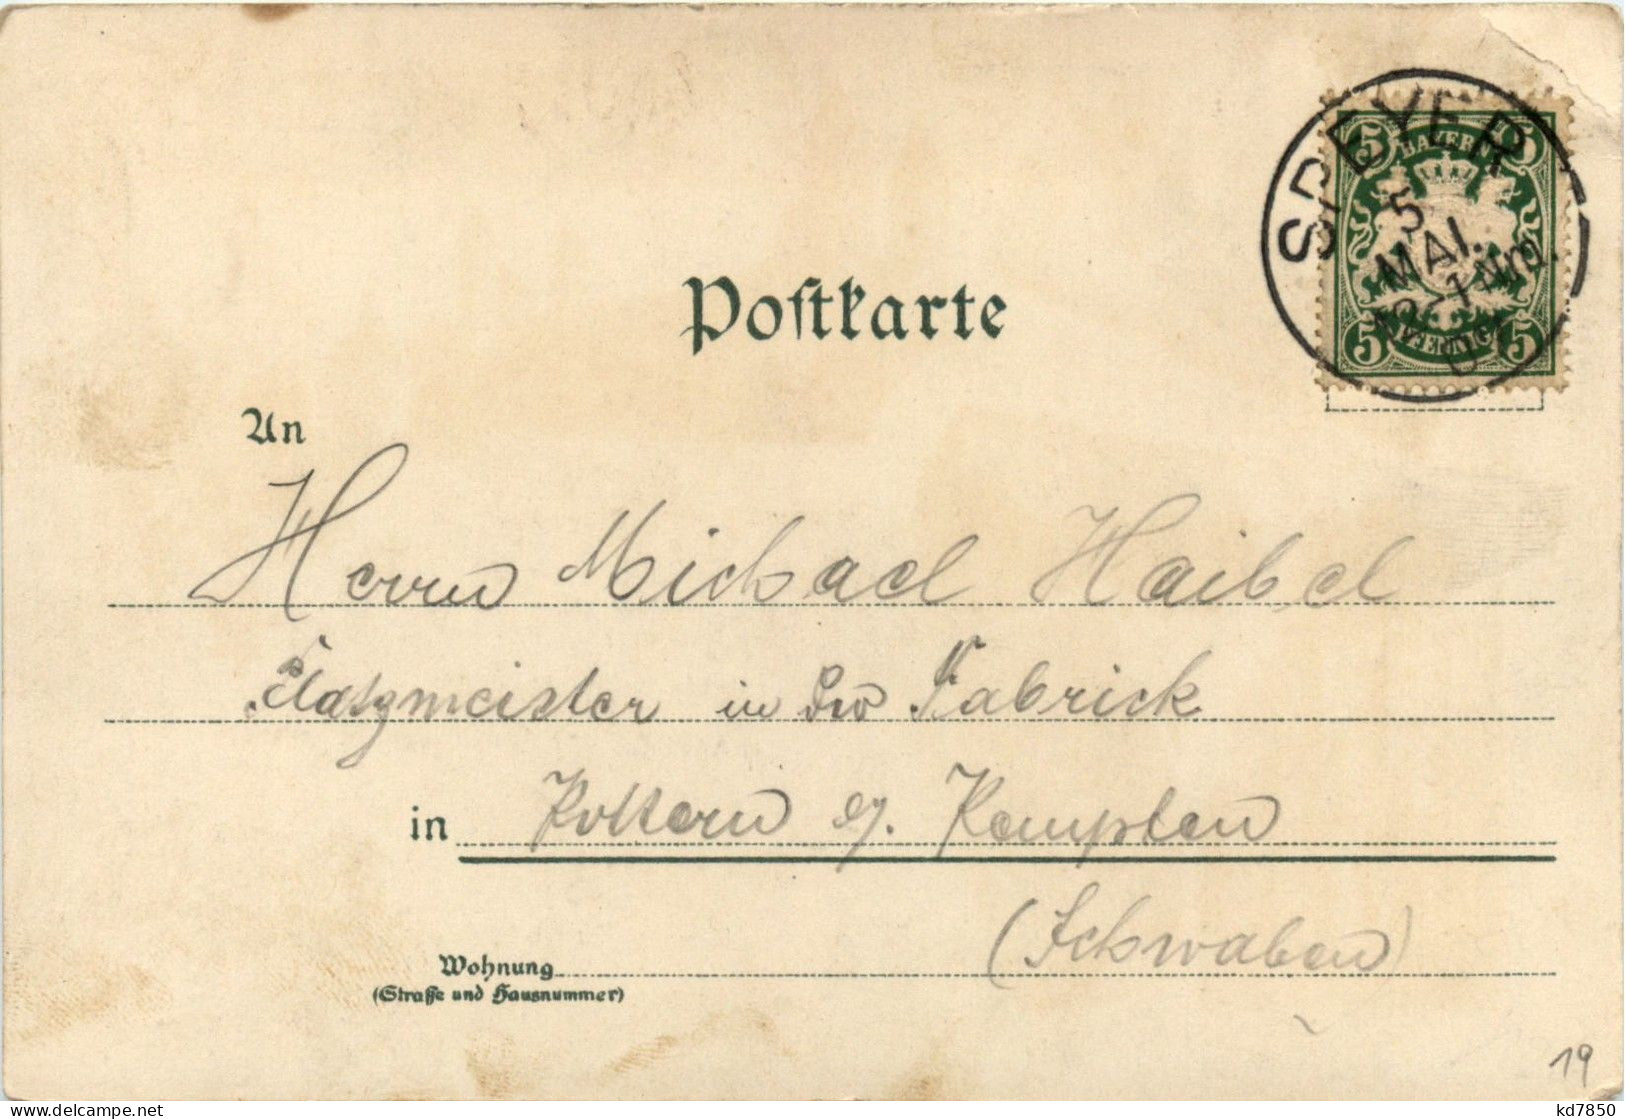 SPEYER
5
MAI.
12-1 Nm.
BAYERN
5 5
5 PFENNIG 5
Postkarte
An
Herrn Michael Haibel
in der Fabrick
in Kottern b/. Kempten
(Schwaben)
Wohnung
(Straße und Hausnummer)
19
kd7850